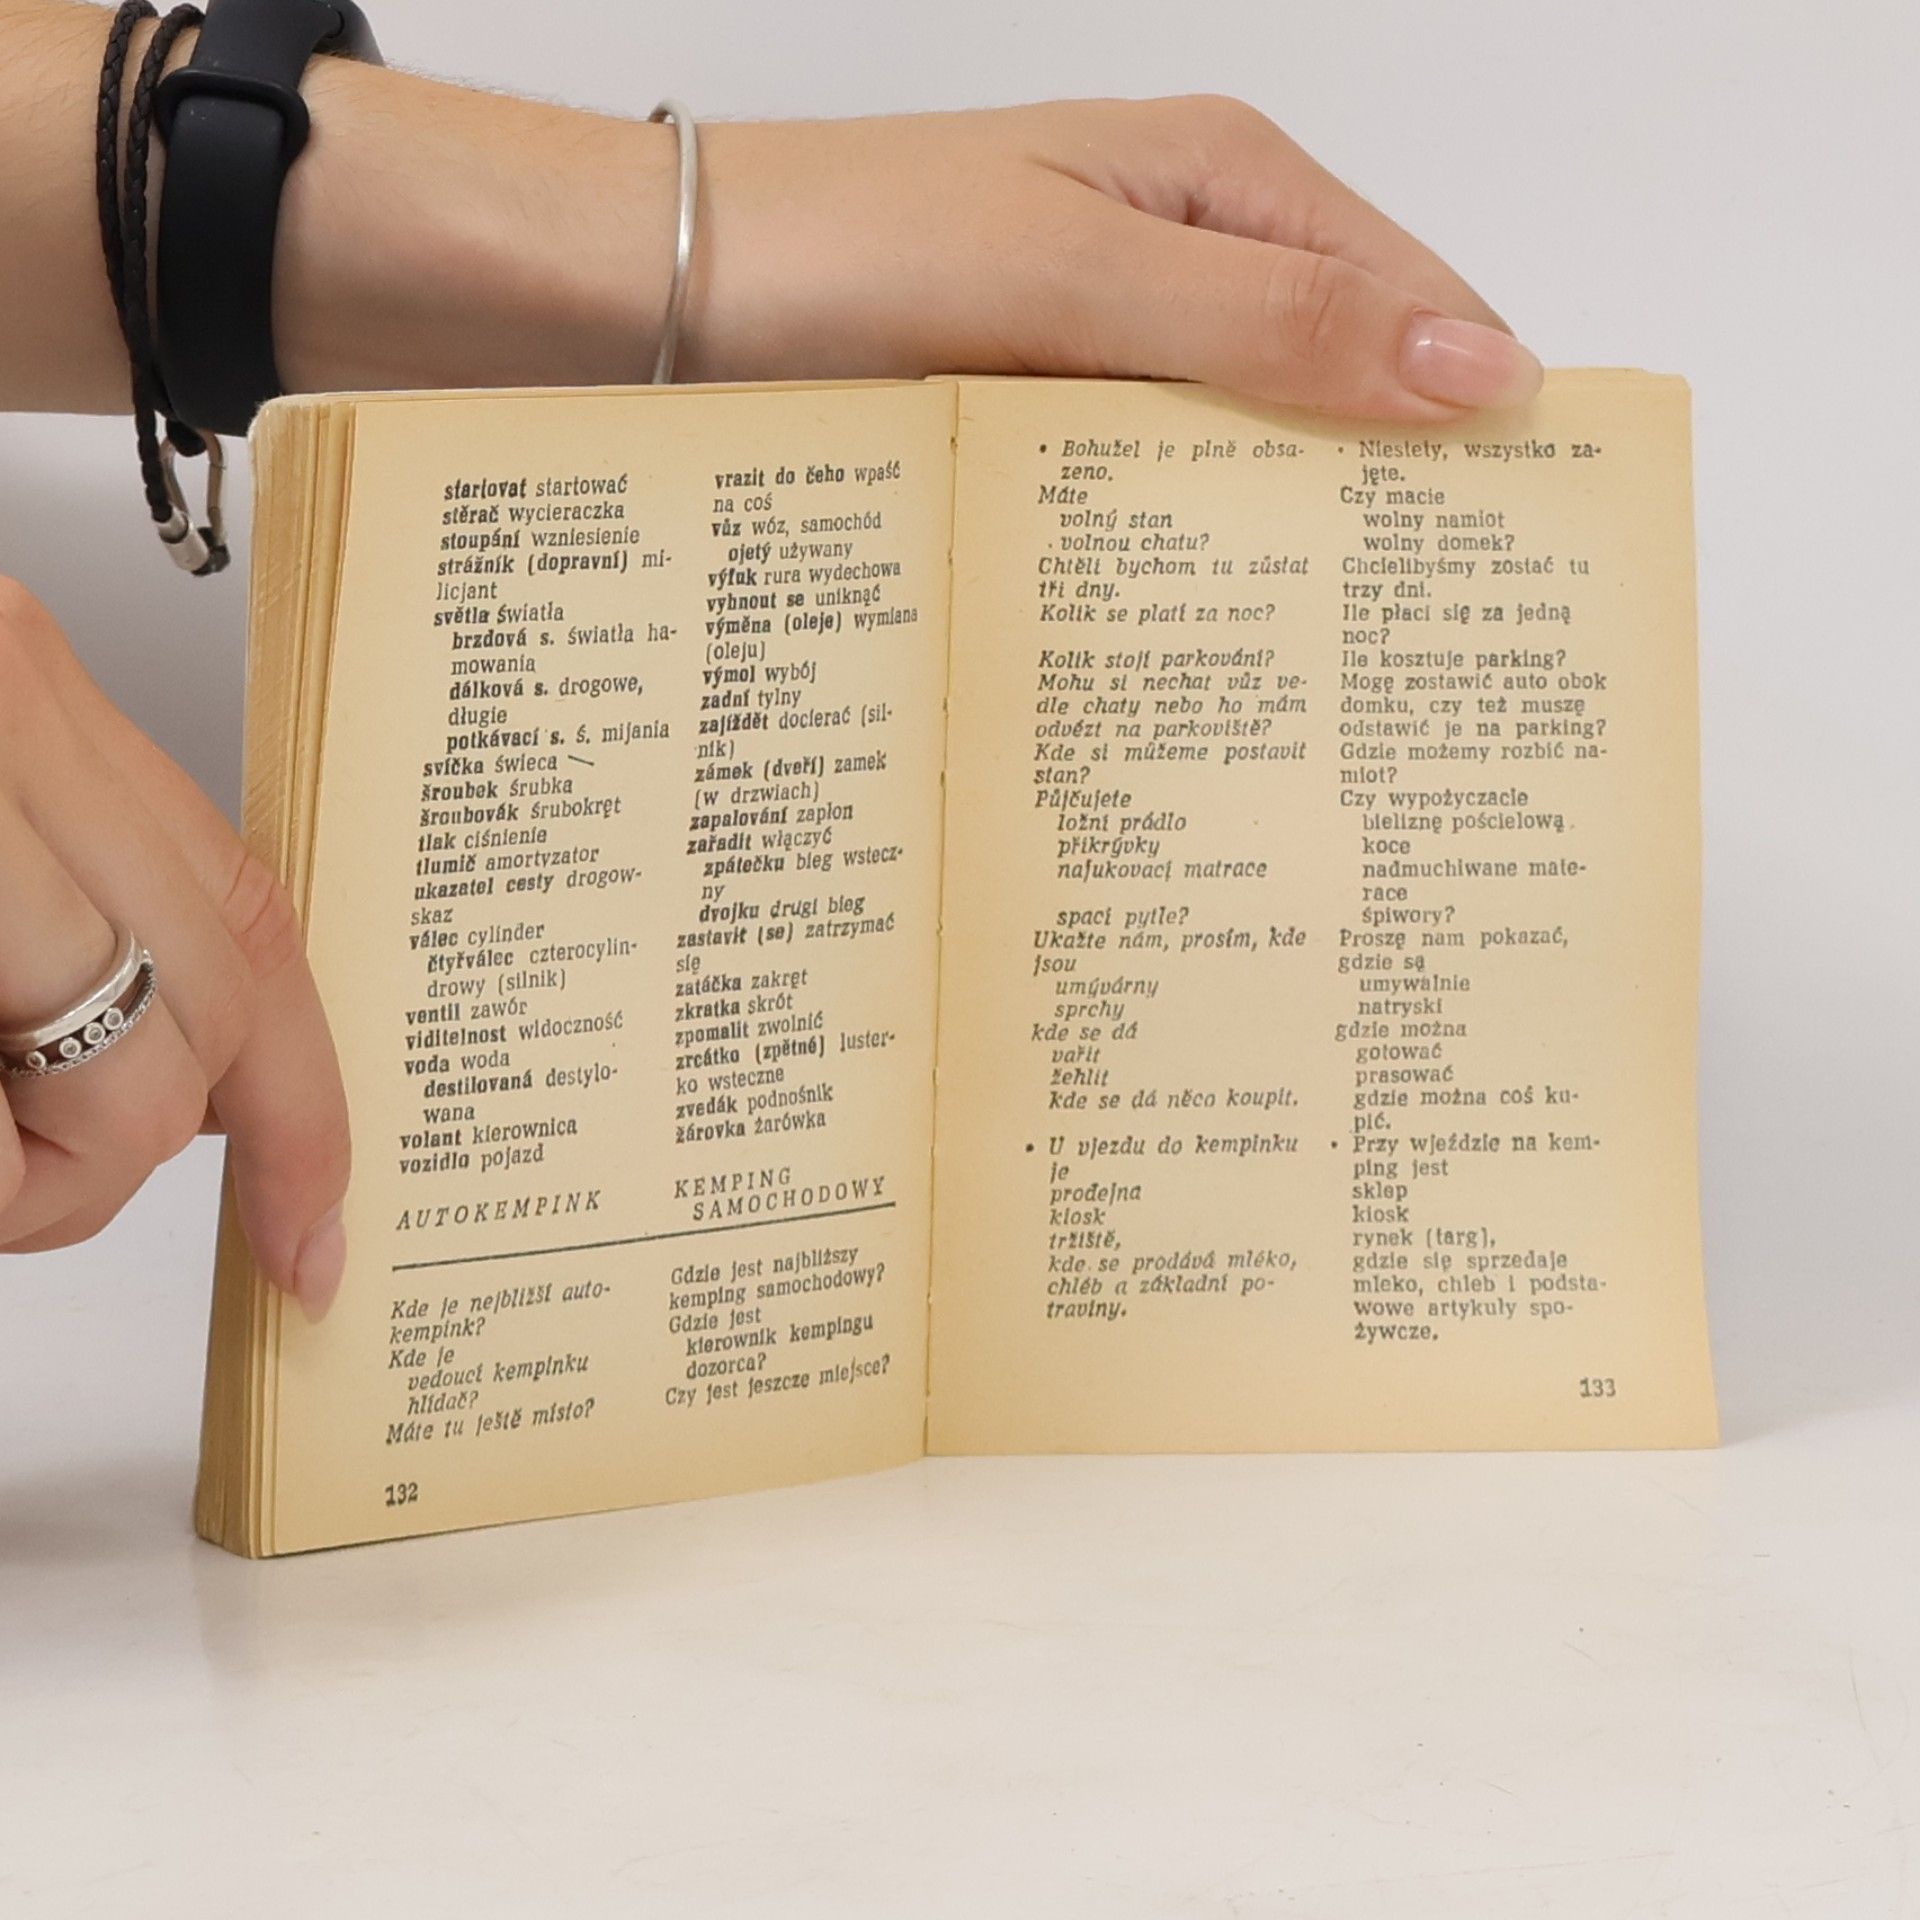 startovat startować
stěrač wycieraczka
stoupání wzniesienie
strážník (dopravní) mi-
licjant
světla światła
brzdová s. światła ha-
mowania
dálková s. drogowe,
długie
potkávací s. ś. mijania
svíčka świeca
šroubek śrubka
šroubovák śrubokręt
tlak ciśnienie
tlumič amortyzator
ukazatel cesty drogow-
skaz
válec cylinder
čtyřválec czterocylin-
drowy (silnik)
ventil zawór
viditelnost widoczność
voda woda
destilovaná destylo-
wana
volant kierownica
vozidlo pojazd
vrazit do čeho wpaść
na coś
vůz wóz, samochód
ojetý używany
výfuk rura wydechowa
vyhnout se uniknąć
výměna (oleje) wymiana
(oleju)
výmol wybój
zadní tylny
zajíždět docierać (sil-
nik)
zámek (dveří) zamek
(w drzwiach)
zapalování zapłon
zařadit włączyć
zpátečku bieg wstecz-
ny
dvojku drugi bieg
zastavit (se) zatrzymać
się
zatáčka zakręt
zkratka skrót
zpomalit zwolnić
zrcátko (zpětné) luster-
ko wsteczne
zvedák podnośnik
žárovka żarówka
AUTOKEMPINK
KEMPING
SAMOCHODOWY
Kde je nejbližší auto-
kempink?
Kde je
vedoucí kempinku
hlídač?
Máte tu ještě místo?
Gdzie jest najbliższy
kemping samochodowy?
Gdzie jest
kierownik kempingu
dozorca?
Czy jest jeszcze miejsce?
132
• Bohužel je plně obsa-
zeno.
Máte
volný stan
volnou chatu?
Chtěli bychom tu zůstat
tři dny.
Kolik se platí za noc?
Kolik stojí parkování?
Mohu si nechat vůz ve-
dle chaty nebo ho mám
odvézt na parkoviště?
Kde si můžeme postavit
stan?
Půjčujete
ložní prádlo
přikrývky
nafukovací matrace
spací pytle?
Ukažte nám, prosím, kde
jsou
umývárny
sprchy
kde se dá
vařit
žehlit
kde se dá něco koupit.
• U vjezdu do kempinku
je
prodejna
kiosk
tržiště,
kde se prodává mléko,
chléb a základní po-
traviny.
• Niestety, wszystko za-
jęte.
Czy macie
wolny namiot
wolny domek?
Chcielibyśmy zostać tu
trzy dni.
Ile płaci się za jedną
noc?
Ile kosztuje parking?
Mogę zostawić auto obok
domku, czy też muszę
odstawić je na parking?
Gdzie możemy rozbić na-
miot?
Czy wypożyczacie
bieliznę pościelową
koce
nadmuchiwane mate-
race
śpiwory?
Proszę nam pokazać,
gdzie są
umywalnie
natryski
gdzie można
gotować
prasować
gdzie można coś ku-
pić.
• Przy wjeździe na kem-
ping jest
sklep
kiosk
rynek (targ),
gdzie się sprzedaje
mleko, chleb i podsta-
wowe artykuły spo-
żywcze.
133